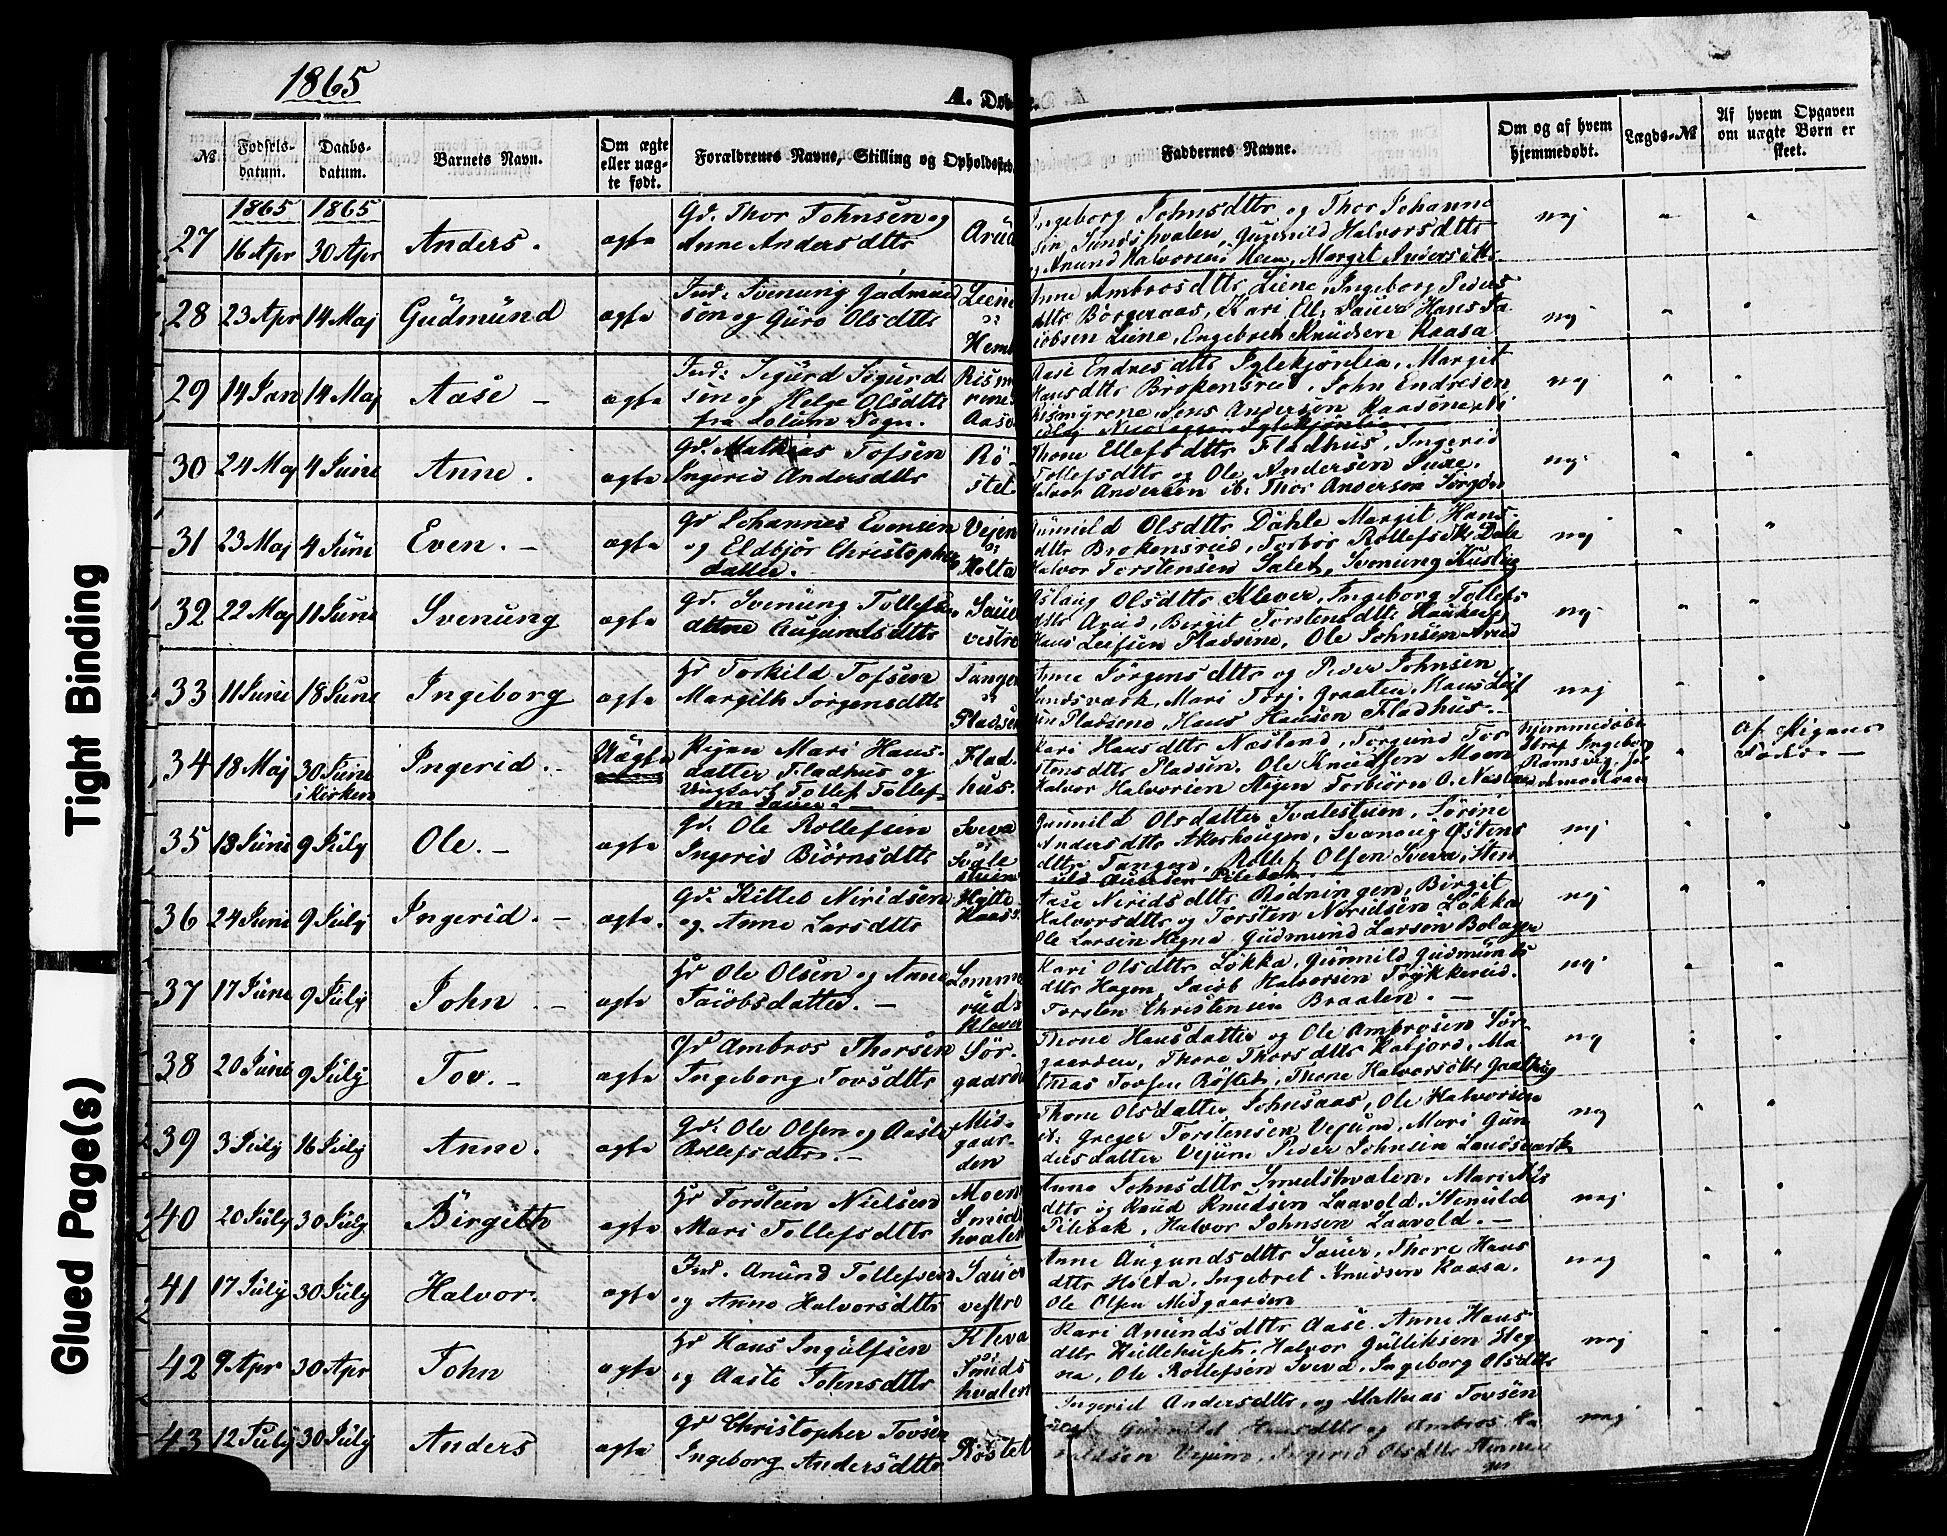 1865
A. Døb
№
Fødsels-
datum.
Daabs-
datum.
Barnets Navn.
Om ægte
eller uæg-
te født.
Forældrenes Navne, Stilling og Opholdssted
Faddernes Navne.
Om og af hvem
hjemmedøbt.
Lægds-№
Af hvem Opgaven
om uægte Børn er
skeet.
1865 1865
27 16 Apr 30 Apr Anders. ægte
Gd. Thor Johnsen og
Anne Andersdttr
Arud
Ingeborg Johnsdttr og Thor Johanne
sen, Gunnild Halvorsdttr
Anund Halvorsen Hem, Margit Andersdttr
nej
28 23 Apr 14 Maj Gudmund ægte
Ind: Svenung Gudmund
sen og Guro Olsdttr
Liene
Hem
Anne Ambrosdttr Liene, Ingeborg Peders
dttr Børgeraas, Kari Ell: Sauer Hans Ja
cobsen Liene, Engebreth Knudsen Kaasa
nej
29 14 Jan 14 Maj Aase – ægte
Ind: Sigurd Sigurd
sen og Helge Olsdttr
fra Solum Sogn.
Aase Endresdttr Iglekjønlia, Margit
Hansdttr Brokensrud, John Endresen
Rismyrene, Jens Andersen Kaasene
nej
30 24 Maj 4 Juni Anne. ægte
Gd. Mathias Tofsen
Ingerid Andersdttr
Rø-
stet.
Thone Ellefsdttr Fladhus, Ingerid
Tollefsdttr og Ole Andersen
Halvor Andersen ib: Thor Andersen
nej
31 23 Maj 4 Juni Even. – ægte
Gd Johannes Evensen
og Eldbjør Christopher
datter.
Vejen
Holta
Gunnild Olsdttr Dahle Margit Hans-
dttr Brokensrud, Torbør Rollefsdtt Dale
Halvor Torstensen Salet, Svenung
nej
32 22 Maj 11 Juni Svenung ægte
Gd. Svenung Tollefsen
Anne Augundsdttr
Sauer
vestre
Aslaug Olsdttr Klever, Ingeborg Tollefs
dttr Arud, Bergit Torstensdttr
Hans Leifsen Pladsene, Ole Johnsen Arud
nej
33 11 Juni 18 Juni Ingeborg ægte
Gd Torkild Tofsen
Margith Jørgensdttr
Tangen
Pladsen
Anne Jørgensdttr og Peder Johnsen
Lundsværk, Mari Torj. Graaten, Hans Leif
sen Pladsene, Hans Hansen Fladhus. –
nej
34 18 Maj 30 Juni
i Kirken
Ingerid. – Uægte
Pigen Mari Hans-
datter Fladhus og
Ungkarl Tollef Tollef-
sen Sauer. –
Flad-
hus.
Kari Hansdttr Næsland, Torgund Tor
stensdttr Pladsen, Ole Knudsen Moen
Halvor Halvorsen Torbiørn O. Næsland
Hjemmedøbt
af Ingeborg
Af Pigens
Fader –
35 18 Juni 9 July Ole. – ægte
Gd. Ole Rollefsen
Ingerid Biørnsdttr
Sveva
Svale
stuen
Gunnild Olsdatter Svalestuen, Jørine
Andersdttr Akerhaugen, Svanaug Østens
dttr Tangen, Rollef Olsen Sveva, Sten
uld Pilebæk.
nej
36 24 Juni 9 July Ingerid. – ægte.
Gd: Kittel Niridsen
og Anne Larsdttr
Hytte
Kaasa
Aase Neridsdttr Rødningen, Birgit
Halvorsdttr og Torsten Neridsen Løkka
Ole Larsen Hegna Gudmund Larsen Bolager
nej
37 17 Juni 9 July John – ægte
Gd Ole Olsen og Anne
Jacobsdatter –
Lomme
ruds
Klever
Kari Olsdttr Løkka, Gunnild Gudmunds
dttr Hagen, Jacob Halvorsen Trykkerud.
Torsten Christensen Braaten. –
nej
38 20 Juni 9 July Tov. – ægte
Gd Ambros Thorsen
Ingeborg Tovsdttr
Sør-
gaarden
Thone Hansdatter og Ole Ambrosen Sør-
gaarden, Thore Thorsdttr Ma
thias Tovsen Røstet, Thone Halvorsdttr
nej
39 3 July 16 July Anne. ægte
Gd: Ole Olsen og Aaste
Rollefsdttr. –
Mid-
gaar-
den
Thone Olsdatter Johnsaas, Ole Halvorsen
ib. Greger Torstensen Vejum, Mari Gun
dersdatter Vejum Peder Johnsen Lundsværk
nej
40 20 July 30 July Birgith ægte
Gd Torstein Nielsen
Mari Tollefsdttr
Moen
Smids
hvalen
Anne Johnsdttr Smidshvalen, Mari Nils
dttr og Knud Knudsen Laavold, Stenuld
Pilebæk, Halvor Johnsen Laavold. –
nej
41 17 July 30 July Halvor. ægte
Ind. Anund Tollefsen
og Anne Halvorsdttr
Sauer
vestre
Anne Augundsdttr Sauer, Thore Hans
dttr Holta, Ingebret Knudsen Kaasa.
Ole Olsen Midgaarden
nej
42 9 Apr 30 Apr John ægte
Gd Hans Ingulfsen
og Aaste Johnsdttr
Kleva
Smids
hvalen
Kari Amundsdttr Aase, Anne Hans-
dttr Hullehuset, Halvor Gulliksen Heg
na, Ole Rollefsen Sveva, Ingeborg Olsdttr
nej
43 12 July 30 July Anders ægte
Gd Christopher Tovsen
Ingeborg Andersdttr
Røstet
Ingerid Andersdttr, og Mathias Tovsen
Gunnild Hansdttr og Ambros
Vejum, Ingerid Olsdttr
nej
Tight Binding
Glued Page(s)